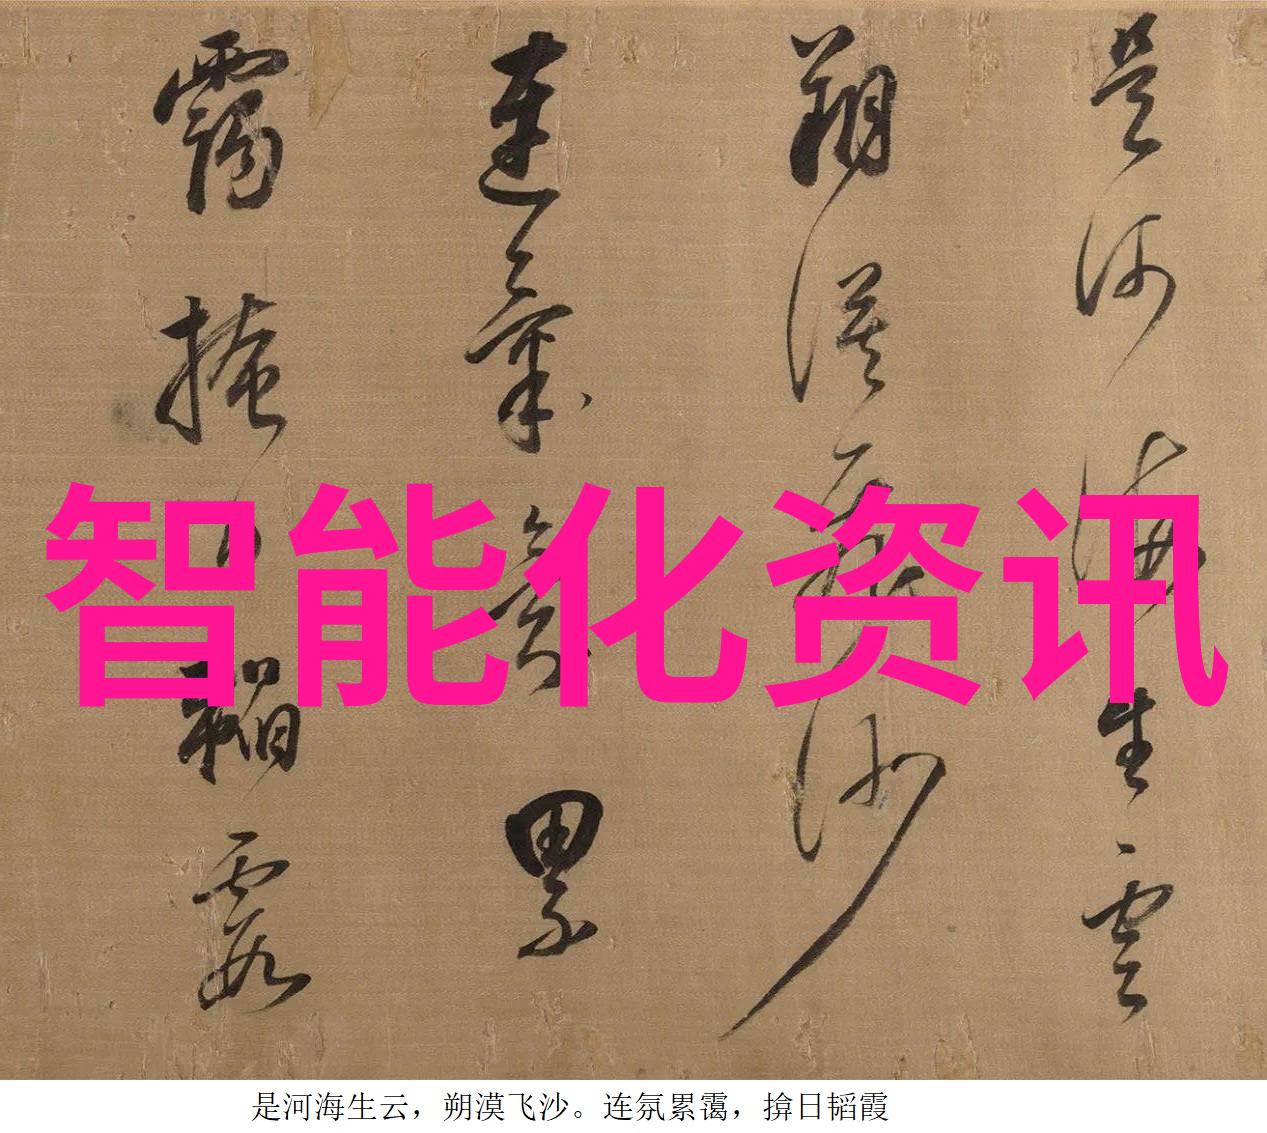 是河海生雲
朔漠飛沙
連氣氛累
靄掩日韜霞
智能化资讯
是河海生云，朔漠飞沙。连氛累霭，揜日韬霞